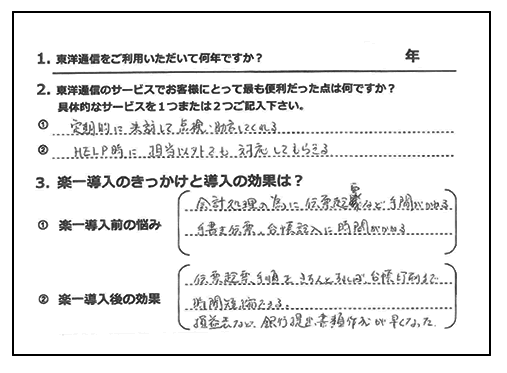 1. 東洋通信をご利用いただいて何年ですか? 年
2. 東洋通信のサービスでお客様にとって最も便利だった点は何ですか?
具体的なサービスを1つまたは2つご記入下さい。
① 定期的に来訪して点検・助言してくれる
② HELP時に担当以外でも対応してもらえる
3. 楽一導入のきっかけと導入の効果は?
① 楽一導入前の悩み
会計処理の為に伝票起票など手間がかかる
手書き伝票、台帳記入に時間がかかる
② 楽一導入後の効果
伝票起票手順をきちんとすれば、台帳印刷まで
時間短縮できる。
損益表など、銀行提出書類作成が早くなった